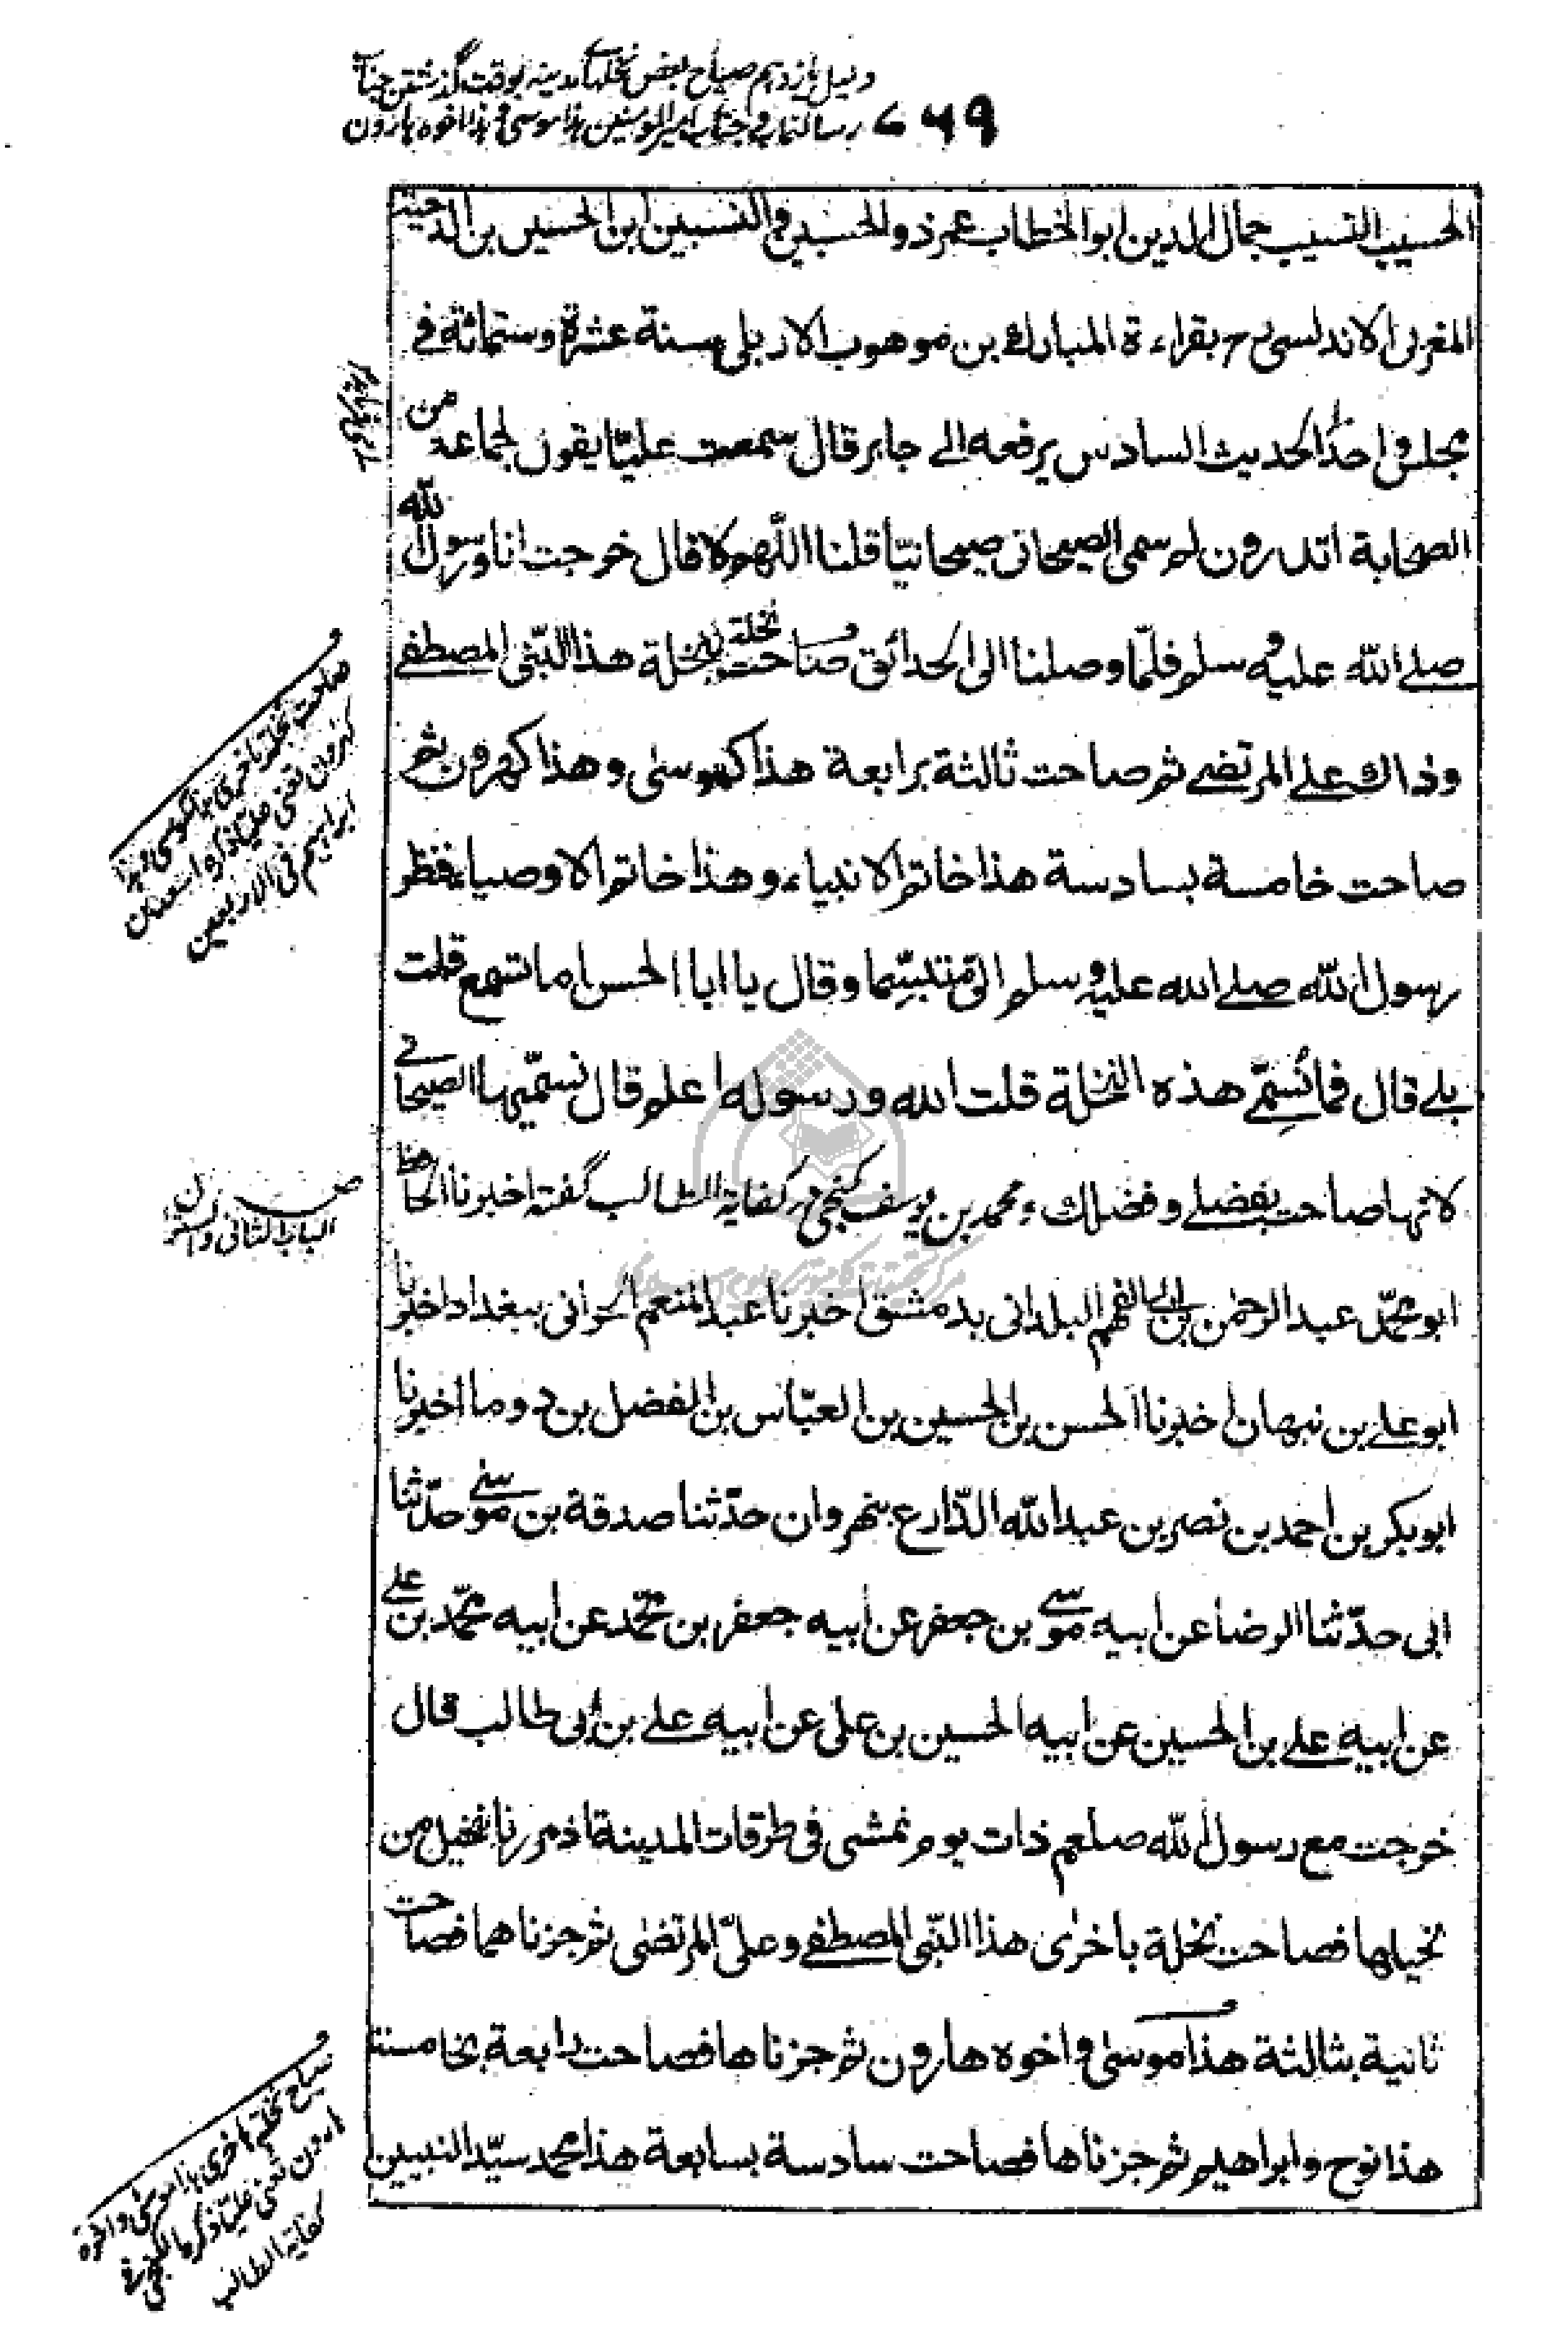 دلیل یازدهم صیاح بعض نخلهای مدینه بوقت گذشتن جناب
رسالتماب و جناب امیر المومنین هذا موسی و هذا اخوه هارون ۶۷۹
الحسیب النسیب جمال الدین ابو الخطاب عمر ذو الحسبین و النسبین ابن الحسین بن الدحیة
المغربی الاندلسی رح بقراءة المبارك بن موهوب الاربلی سنة عشرة و ستمائة فی
مجلس واحد الحدیث السادس یرفعه الی جابر قال سمعت علیّا یقول لجماعة من
الصحابة اتدرون لم سمی الصیحانی صیحانیّا قلنا اللّهم لا قال خرجت انا و رسول اللّه
صلی اللّه علیه و سلم فلمّا وصلنا الی الحدائق صاحت نخلة بنخلة هذا النّبی المصطفی
و ذاك علی المرتضی ثم صاحت ثالثة برابعة هذا كموسی و هذا كهرون ثم
صاحت خامسة بسادسة هذا خاتم الانبیاء و هذا خاتم الاوصیاء فنظر
رسول اللّه صلی اللّه علیه و سلم الیّ متبسّما و قال یا ابا الحسن اما تسمع قلت
بلی قال فما تُسمّی هذه النخلة قلت اللّه و رسوله اعلم قال نسمّیها الصیحانی
لانها صاحت بفضلی و فضلك و محمد بن یوسف گنجی در كفایة الطالب گفته اخبرنا الحافظ
ابو محمّد عبد الرحمن بن ابی الفهم البلدانی بدمشق اخبرنا عبد المنعم الحرانی ببغداد اخبرنا
ابو علی بن نبهان اخبرنا الحسن بن الحسین بن العبّاس بن الفضل بن دوما اخبرنا
ابو بكر بن احمد بن نصر بن عبد اللّه الذّارع بنهروان حدّثنا صدقة بن موسی حدّثنا
ابی حدّثنا الرضا عن ابیه موسی بن جعفر عن ابیه جعفر بن محمّد عن ابیه محمّد بن علی
عن ابیه علی بن الحسین عن ابیه الحسین بن علی عن ابیه علی بن ابی طالب قال
خرجت مع رسول اللّه صلعم ذات یوم نمشی فی طرقات المدینة اذ مررنا بنخیل من
نخیلها فصاحت نخلة باخری هذا النّبی المصطفی و علیّ المرتضی ثم جزناهما فصاحت
ثانیة بثالثة هذا موسی و اخوه هارون ثم جزناها فصاحت رابعة بخامسة
هذا نوح و ابراهیم ثم جزناها فصاحت سادسة بسابعة هذا محمد سیّد النبیین
صاحت نخلة باخری هذا كموسی و هذا
كهرون تعنی علیّا ذكره اسعد بن
ابراهیم فی الاربعین
الباب الثانی و الستون
صیاح نخلة اخری هذا موسی و اخوه
هارون تعنی علیّا ذكره الكنجی فی
كفایة الطالب